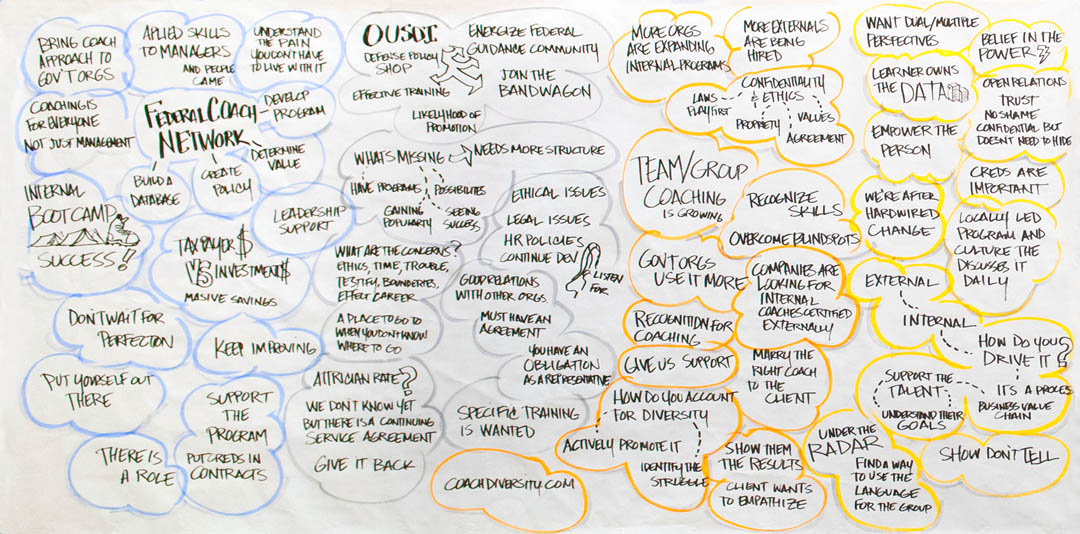 BRING COACH
APPROACH TO
GOV'T ORGS
APLIED SKILLS
TO MANAGERS
AND PEOPLE
CAME
UNDERSTAND
THE PAIN
YOU DON'T HAVE
TO LIVE WITH IT
COACHING IS
FOR EVERYONE
NOT JUST MANAGEMENT
FEDERAL COACH-
NETWORK
DEVELOP
PROGRAM
DETERMINE
VALUE
CREATE
POLICY
BUILD A
DATABASE
INTERNAL
BOOTCAMP
SUCCESS!
LEADERSHIP
SUPPORT
TAX PAYER $
VS INVESTMENT$
MASIVE SAVINGS
DON'T WAIT FOR
PERFECTION
KEEP IMPROVING
PUT YOURSELF OUT
THERE
SUPPORT
THE
PROGRAM
PUT CREDS IN
CONTRACTS
THERE IS
A ROLE
OUSDI
DEFENSE POLICY
SHOP
EFFECTIVE TRAINING
ENERGIZE FEDERAL
GUIDANCE COMMUNITY
JOIN THE
BANDWAGON
LIKELIHOOD OF
PROMOTION
WHATS MISSING
NEEDS MORE STRUCTURE
HAVE PROGRAMS
POSSIBILITIES
GAINING
POPULARITY
SEEING
SUCCESS
WHAT ARE THE CONCERNS?
ETHICS, TIME, TROUBLE,
TESTIFY, BOUNDERIES,
EFFECT CAREER
A PLACE TO GO TO
WHEN YOU DON'T KNOW
WHERE TO GO
ATTRICIAN RATE?
WE DON'T KNOW YET
BUT THERE IS A CONTINUING
SERVICE AGREEMENT
GIVE IT BACK
ETHICAL ISSUES
LEGAL ISSUES
HR POLICIES
CONTINUE DEV
LISTEN
FOR
GOOD RELATIONS
WITH OTHER ORGS
MUST HAVE AN
AGREEMENT
YOU HAVE AN
OBLIGATION
AS A REPRESENTATIVE
SPECIFIC TRAINING
IS WANTED
COACHDIVERSITY.COM
MORE ORGS
ARE EXPANDING
INTERNAL PROGRAMS
MORE EXTERNALS
ARE BEING
HIRED
CONFIDENTIALITY
& ETHICS
LAWS
PLAY FIRST
PROPRIETY
VALUES
AGREEMENT
TEAM/GROUP
COACHING
IS GROWING
RECOGNIZE
SKILLS
OVERCOME BLINDSPOTS
GOV'T ORGS
USE IT MORE
COMPANIES ARE
LOOKING FOR
INTERNAL
COACHES CERTIFIED
EXTERNALLY
RECOGNITION FOR
COACHING
GIVE US SUPPORT
MARRY THE
RIGHT COACH
TO THE
CLIENT
HOW DO YOU ACCOUNT
FOR DIVERSITY
ACTIVELY PROMOTE IT
IDENTIFY THE
STRUGGLE
SHOW THEM
THE RESULTS
CLIENT WANTS
TO EMPATHIZE
WANT DUAL/MULTIPLE
PERSPECTIVES
BELIEF IN THE
POWER
LEARNER OWNS
THE DATA
OPEN RELATIONS
TRUST
NO SHAME
CONFIDENTIAL BUT
DOESN'T NEED TO HIDE
EMPOWER THE
PERSON
CREDS ARE
IMPORTANT
WE'RE AFTER
HARDWIRED
CHANGE
LOCALLY LED
PROGRAM AND
CULTURE THE
DISCUSES IT
DAILY
EXTERNAL
INTERNAL
HOW DO YOU
DRIVE IT?
IT'S A PROCES
BUSINESS VALUE
CHAIN
SUPPORT THE
TALENT
UNDERSTAND THEIR
GOALS
UNDER THE
RADAR
FIND A WAY
TO USE THE
LANGUAGE
FOR THE GROUP
SHOW DON'T TELL